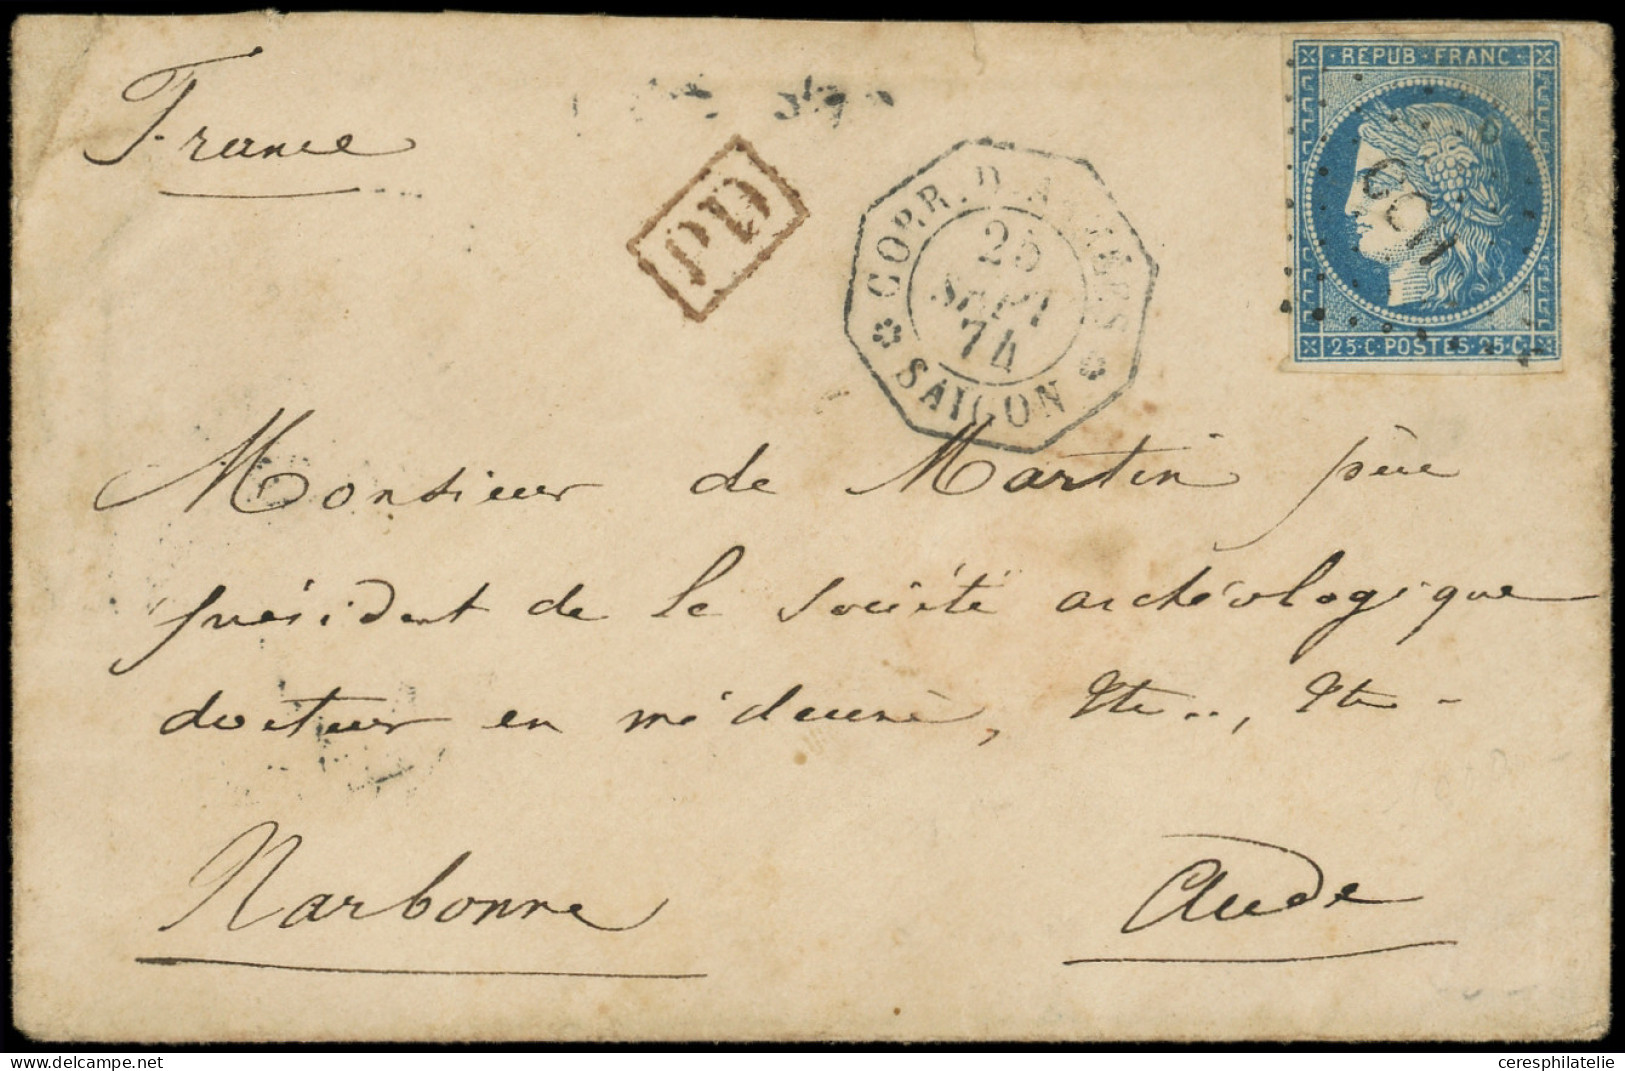 REPUB · FRANC ·
France
PD
CORR. D. ARMÉES
25
SEPT
74
SAIGON
CCH
25 · C · POSTES · 25 · C
Monsieur de Martin père
président de la société archéologique
docteur en médecine, &te .., &te -
Narbonne Aude
ceresphilatelie